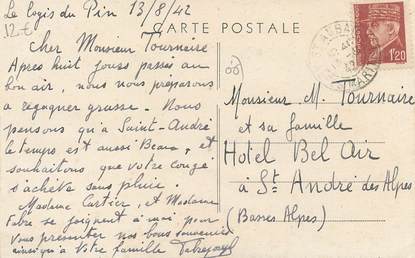 Le logis du Pin 13/8/42
12 €
CARTE POSTALE
Cher Monsieur Tournaire
Apres huit jours passés au
bon air, nous nous préparons
a regagner grasse. Nous
pensons qu'à Saint-André
le temps est aussi Beau, et
souhaitons que votre congé
s'achève sans pluie.
Madame Cartier, et Madame
Fabre se joignent à moi pour
Vous presenter nos bons souvenirs
ainsi qu'à Votre famille
8-
1f20
Monsieur M. Tournaire
et sa famille
Hotel Bel Air
à St André des Alpes
(Basses Alpes)